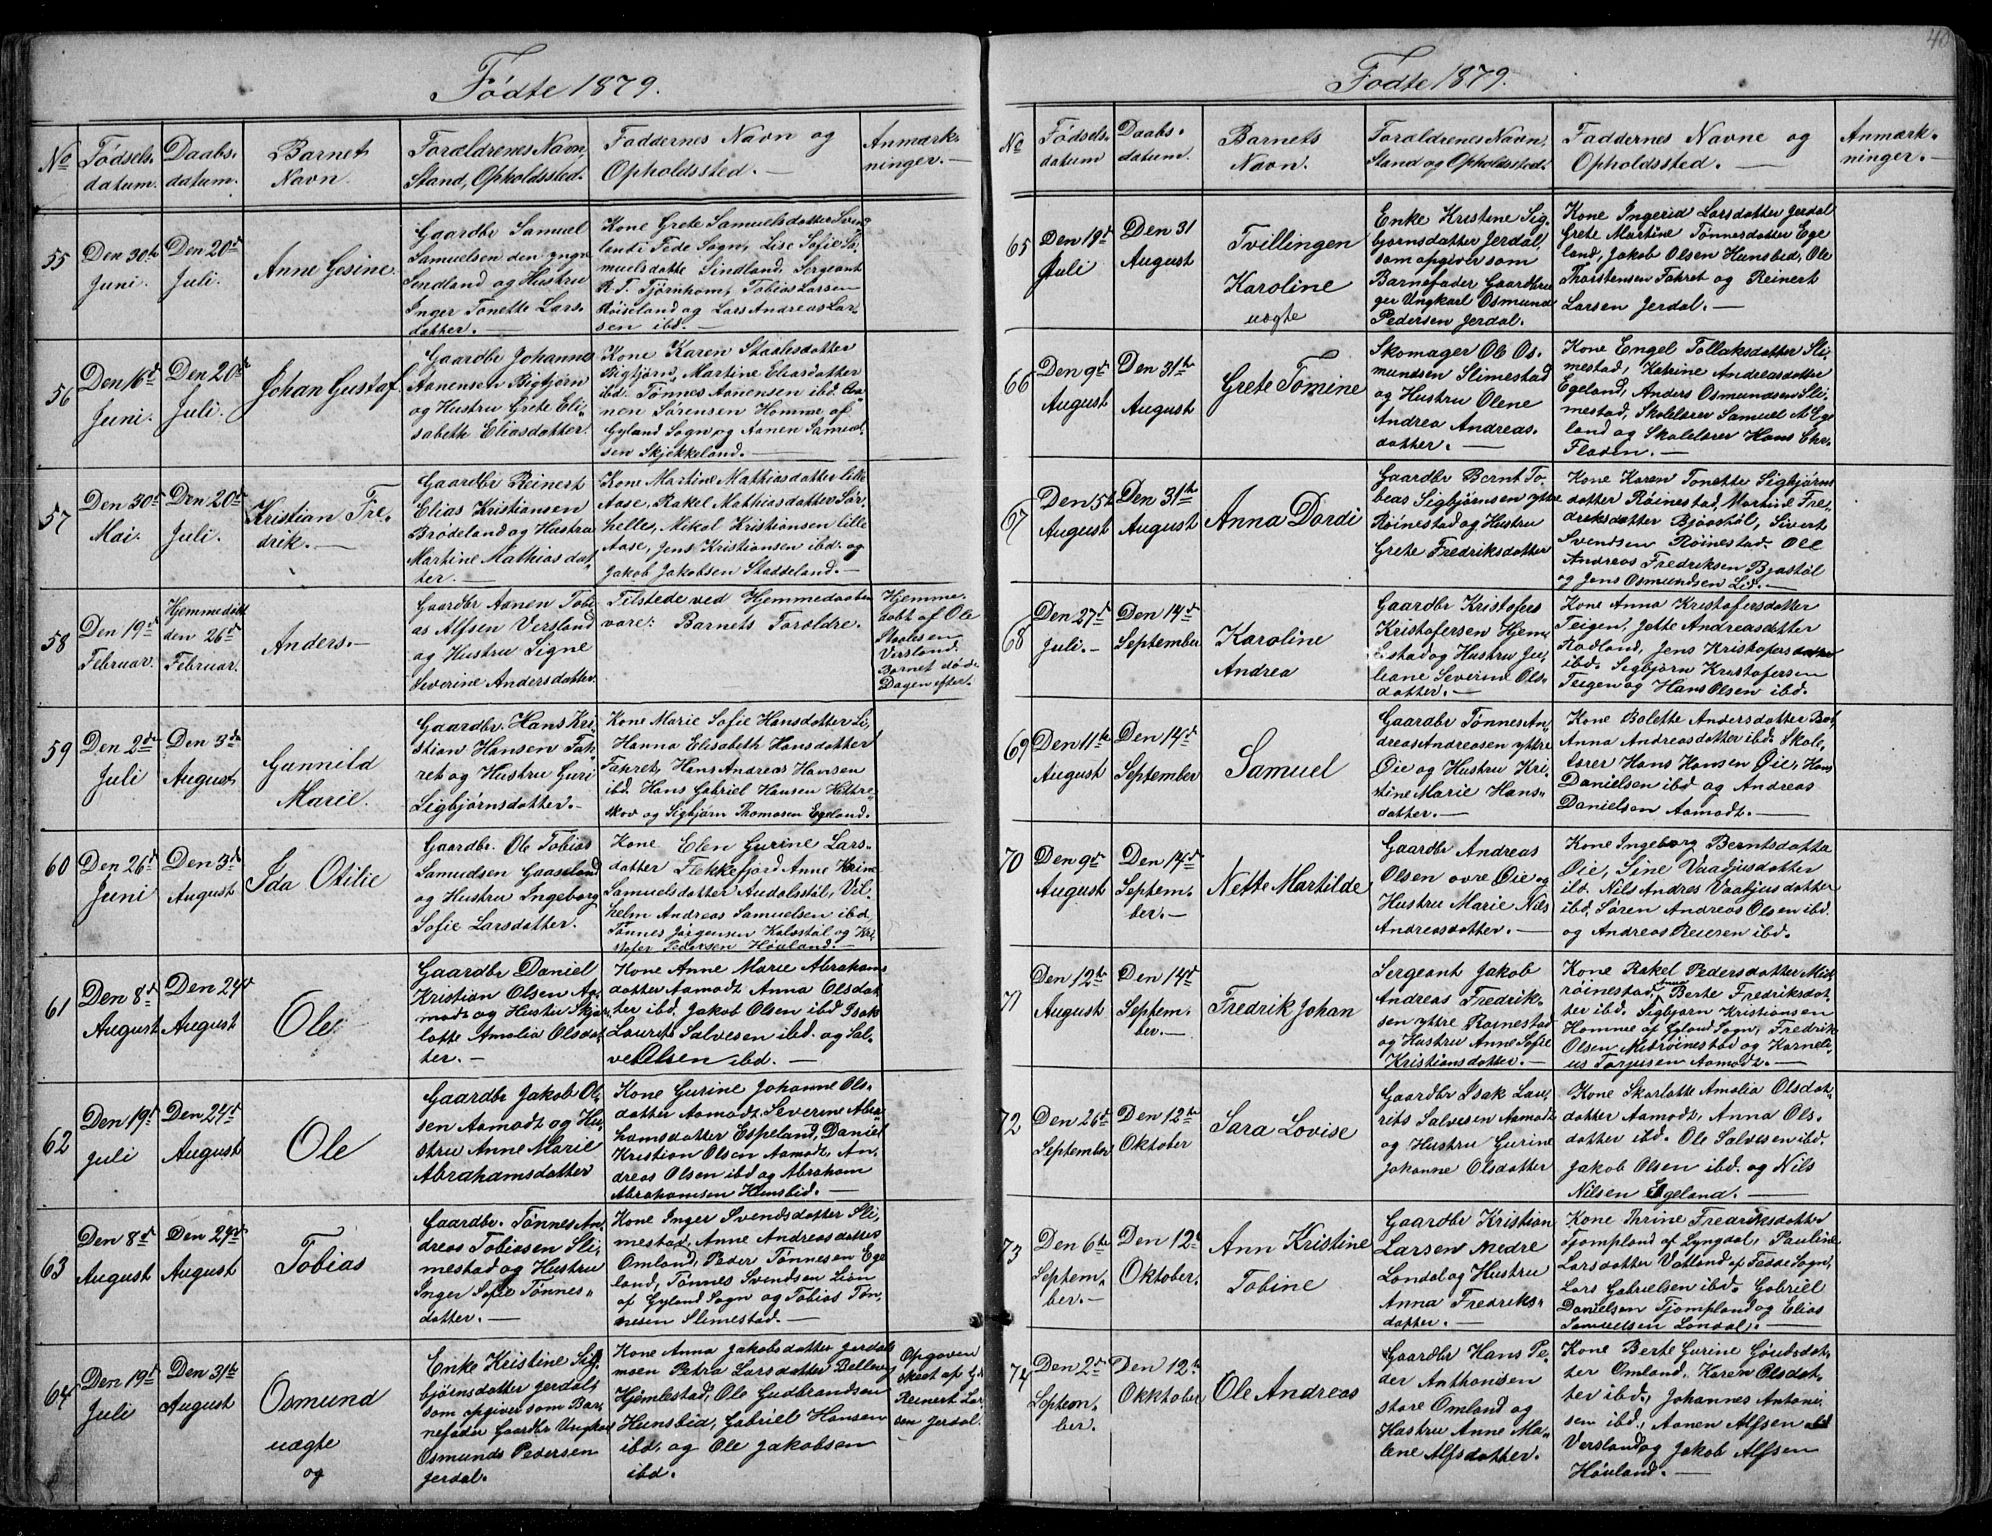 Fødte 1879.
No
Fødsels-
datum.
Daabs-
datum.
Barnets
Navn.
Forældrenes Navn,
Stand, Opholdssted.
Faddernes Navn og
Opholdssted. —
Anmærk-
ninger. —
55
Den 30te
Juni.
Den 20de
Juli.
Anne Gesine.
Gaardbr Samuel
Samuelsen den yngre
Sendland og Hustru
Inger Tonette Lars-
datter. —
Kone Grete Samuelsdatter Sven-
land i Fede Sogn, Lise Sofie Sa-
muelsdatte Sindland, Sergeant
R. T. Tjørnhom, Tobias Larsen
Røiseland og Lars Andreas Lar-
sen ibd. —
56
Den 16d
Juni.
Den 20de
Juli.
Johan Gustaf.
Gaardbr Johannes
Aanensen Bigbjørn
og Hustru Grete Eli-
sabeth Eliasdatter.
Kone Karen Staalesdatter
Bigbjørn, Martine Eliasdatter
ibd. Tønnes Aanensen ibd.
Sørensen Homme af
Gyland Sogn og Aanen Samuel-
sen Skjekkeland. —
57
Den 30te
Mai.
Den 20d
Juli.
Kristian Fre-
drik. —
Gaardbr Reinert
Elias Kristiansen
Brødeland og Hustru
Martine Mathiasdat-
ter. —
Kone Martine Mathiasdatter lille
Aase, Rakel Mathiasdatter Sør-
helle, Mikal Kristiansen lille
Aase, Jens Kristiansen ibd. og
Jakob Jakobsen Staddeland. —
58
Den 19d
Februar.
Hjemmedøbt
den 26d
Februar.
Anders. —
Gaardbr Aanen Tobi-
as Alfsen Versland
og Hustru Signe
Severine Andersdatter.
Tilstede ved Hjemmedaaben
vare: Barnets Forældre.
Hjemme-
døbt af Ole
Staalesen
Versland.
Barnet døde
Dagen efter.
59
Den 2de
Juli
Den 3de
August.
Gunnild
Marie.
Gaardbr. Hans Kri-
stian Hansen Fak-
ret og Hustru Guri
Sigbjørnsdatter. —
Kone Marie Sofie Hansdatter Li,
Hanna Elisabeth Hansdatter
Fakret, Hans Andreas Hansen
ibd. Hans Gabriel Hansen Hettre-
skov og Sigbjørn Thomasen Egeland.
60
Den 26d
Juni
Den 3d
August
Ida Otilie
Gaardbr. Ole Tobias
Samuelsen Gaaseland
og Hustru Ingeborg
Sofie Larsdatter.
Kone Elen Gurine Lars-
datter Flekkefjord Anne
Samuelsdatter Audalsstøl, Vil-
helm Andreas Samuelsen ibd.
Tønnes Jørgensen Kalsstøl og Kri-
stofer Pedersen Høiland. —
61
Den 8d
August
Den 24de
August
Ole
Gaardbr Daniel
Kristian Olsen Aa-
modt og Hustru Skar-
lotte Amalia Olsdat-
ter. —
Kone Anne Marie Abrahams-
datter Aamodt Anna Olsdat-
ter ibd. Jakob Olsen ibd Isak
Laurits Salvesen ibd. og Sal-
ve Olsen ibd. —
62
Den 19d
Juli
Den 24d
August
Ole
Gaardbr Jakob Ol-
sen Aamodt og Hu-
stru Anne Marie
Abrahamsdatter
Kone Gurine Johanne Ols-
datter Aamodt, Severine Abra-
hamsdatter Espeland, Daniel
Kristian Olsen Aamodt, An-
dreas Olsen ibd og Abraham
Abrahamsen Hunsbid. —
63
Den 8d
August
Den 24de
August
Tobias
Gaardbr. Tønnes An-
dreas Tobiasen Sli-
mestad og Hustru
Inger Sofie Tønnes-
datter. —
Kone Inger Svendsdatter Sli-
mestad, Anne Andreasdatter
Omland, Peder Tønnesen Ege-
land, Tønnes Svendsen Lien
af Gyland Sogn og Tobias Tøn-
nesen Slimestad. —
64
Den 19d
Juli
Den 31te
August
Osmund
uægte
og
Enke Kristine Sig-
bjørnsdatter Jerdal,
som opgiver som Bar-
nefader Gaardbr Ungkarl
Osmund Pedersen
Jerdal.
Kone Anna Jakobsdatter Jerdals
moen Petra Larsdatter
Hjemlestad, Ole Gudbrandsen
Hunsbid, Gabriel Hansen
ibd. og Ole Jakobsen
ibd.
Opgaven
skeet af G.
Reinert Lar-
sen Jerdal.
40
Fødte 1879.
No
Fødsels-
datum
Daabs-
datum.
Barnets
Navn.
Forældrenes Navn,
Stand og Opholdssted.
Faddernes Navne og
Opholdssted. —
Anmærk-
ninger. —
65
Den 19d
Juli
Den 31
August
Tvillingen
Karoline
uægte
Enke Kristine Sig-
bjørnsdatter Jerdal,
som opgiver som
Barnefader Gaardbru-
ger Ungkarl Osmund
Pedersen Jerdal.
Kone Ingerid Larsdatter Jerdal
Grete Martine Tønnesdatter Ege-
land, Jakob Olsen Hunsbid, Ole
Thorstensen Fakret og Reinert
Larsen Jerdal. —
66
Den 9d
August
Den 31te
August
Grete Tomine
Skomager Ole Os-
mundsen Slimestad
og Hustru Olene
Andrea Andreas-
datter. —
Kone Engel Tollaksdatter Sli-
mestad, Katrine Andreasdatte
Egeland, Anders Osmundsen Sli-
mestad, Skolelærer Samuel A. Ege-
land og Skolelærer Hans Chr.
Fladen. —
67
Den 5te
August
Den 31te
August
Anna Dordi
Gaardbr Bernt To-
beas Sigbjørnsen yttre
Røinestad og Hustru
Grete Fredriksdatter
Kone Karen Tonette Sigbjørns-
datter Røinestad, Martine Fre-
driksdatter Bjaastøl, Sivert
Svendsen Røinestad. Ole
Andreas Fredriksen Bjastøl
og Jens Osmundsen Lid. —
68
Den 27d
Juli. —
Den 14d
September
Karoline
Andrea
Gaardbr Kristofers
Kristofersen Hjem-
lestad og Hustru Ju-
liane Severine Ols-
datter. —
Kone Anna Kristofersdatter
Teigen, Jette Andreasdatter
Rødland, Jens Kristofersen
ibd. Sigbjørn Kristofersen
Teigen og Hans Olsen ibd.
69
Den 11te
August
Den 14d
September
Samuel
Gaardbr Tønnes An-
dreas Andreasen yttre
Øie og Hustru Kri-
stine Marie Hans-
datter. —
Kone Bolette Andersdatter
Anna Andreasdatter ibd. Skole-
lærer Hans Hansen Øie, Hans
Danielsen ibd og Andreas
Danielsen Aamodt. —
70
Den 9d
August
Den 14d
Septem-
ber. —
Nette Martilde
Gaardbr Andreas
Olsen øvre Øie og
Hustru Marie Nils
Andreasdatter. —
Kone Ingeborg Berntsdatta
Øie, Sine Vaatjusdatter
ibd. Nils Andreas Vaatjusdatter
ibd, Søren Andreas Olsen ibd.
og Andreas Reiersen ibd.
71
Den 12te
August
Den 14d
Septem-
ber. —
Fredrik Johan
Sergeant Jakob
Andreas Fredrik-
sen yttre Røinestad
og Hustru Anne Sofie
Kristiansdatter. —
Kone Rakel Pedersdatter Mid-
røinestad, Berte Fredriksdat-
ter ibd. Sigbjørn Kristiansen
Homme af Gyland Sogn, Fredrik
Olsen Midrøinestad og Korneli-
us Torjusen Aamodt. —
72
Den 26d
September
Den 12te
Oktober
Sara Lovise
Gaardbr Isak Lau-
rits Salvesen Aamodt
og Hustru Gurine
Johanne Olsdatter
Kone Skarlotte Amalia Olsdat-
datter Aamodt, Anna Ols-
datter ibd. Ole Salvesen ibd.
Jakob Olsen ibd. og Nils
Nilsen Egeland. —
73
Den 6te
Septem-
ber. —
Den 12t
Oktober.
Ann Kristine
Tobine
Gaardbr Kristian
Larsen Nedre
Londal og Hustru
Anna Fredriks-
datter. —
Kone Thrine Fredriksdatter
Tjompland af Lyngdal, Pauline
Larsdatter Vatland af Fæde Sogn,
Lars Gabrielsen ibd. Gabriel
Danielsen Tjompland og Elias
Samuelsen Londal. —
74
Den 2d
Septem-
ber.
Den 12te
Okktober
Ole Andreas
Gaardbr Hans Pe-
der Anthonisen
store Omland og
Hustru Anne Ma-
lene Alfsdatter.
Kone Berte Gurine Gaudsdat-
ter Omland, Karen Olsdat-
ter ibd., Johannes Antoni-
sen ibd., Aanen Alfsen
Versland og Jakob Alfsen
Høiland. —